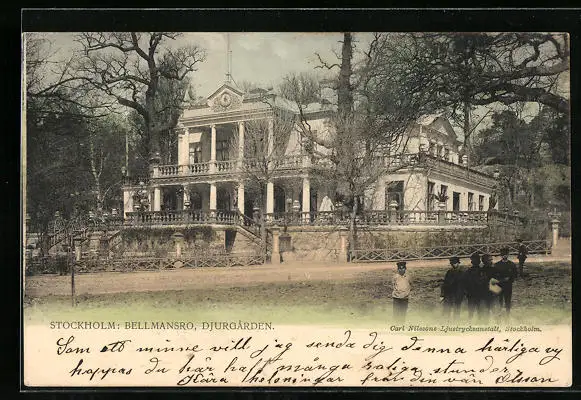 STOCKHOLM: BELLMANSRO, DJURGÅRDEN.
Carl Nilssons Ljustrycksanstalt, Stockholm.
Som ett minne vill jag senda dig denna härliga vy
hoppas du har haft många saliga stunder
Kära helsningar från din vän Olsson